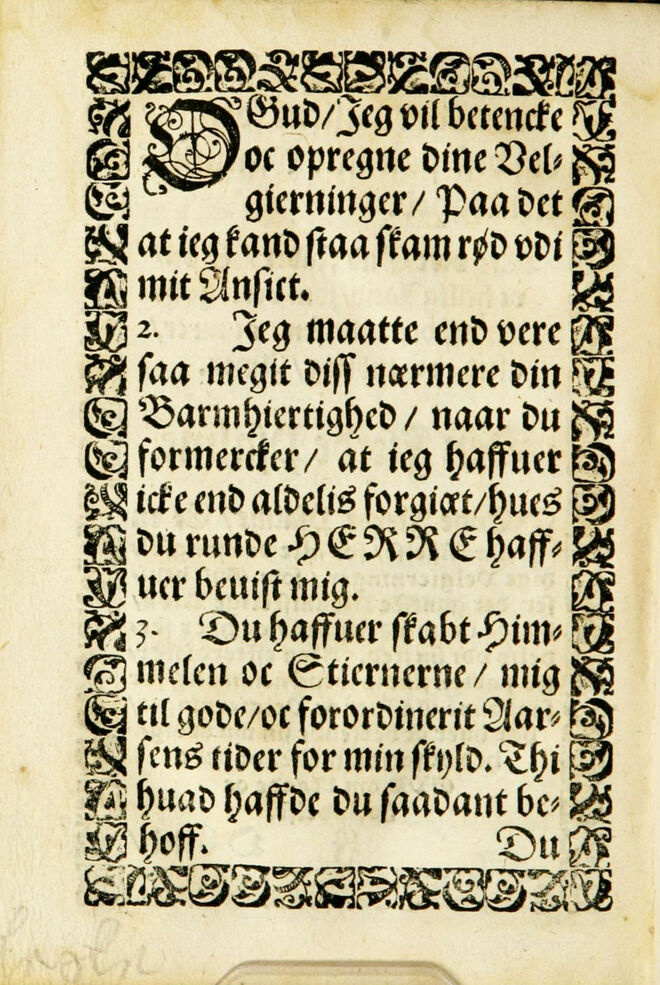 O Gud/ Jeg vil betencke
oc opregne dine Vel⸗
gierninger/ Paa det
at ieg kand staa skam rød vdi
mit Ansict.
2. Jeg maatte end vere
saa megit diss nærmere din
Barmhiertighed/ naar du
formercker/ at ieg haffuer
icke end aldelis forgiæt/ hues
du runde HERRE haff⸗
uer beuist mig.
3. Du haffuer skabt Him⸗
melen oc Stiernerne/ mig
til gode/ oc forordinerit Aar⸗
sens tider for min skyld. Thi
huad haffde du saadant be⸗
hoff. Du